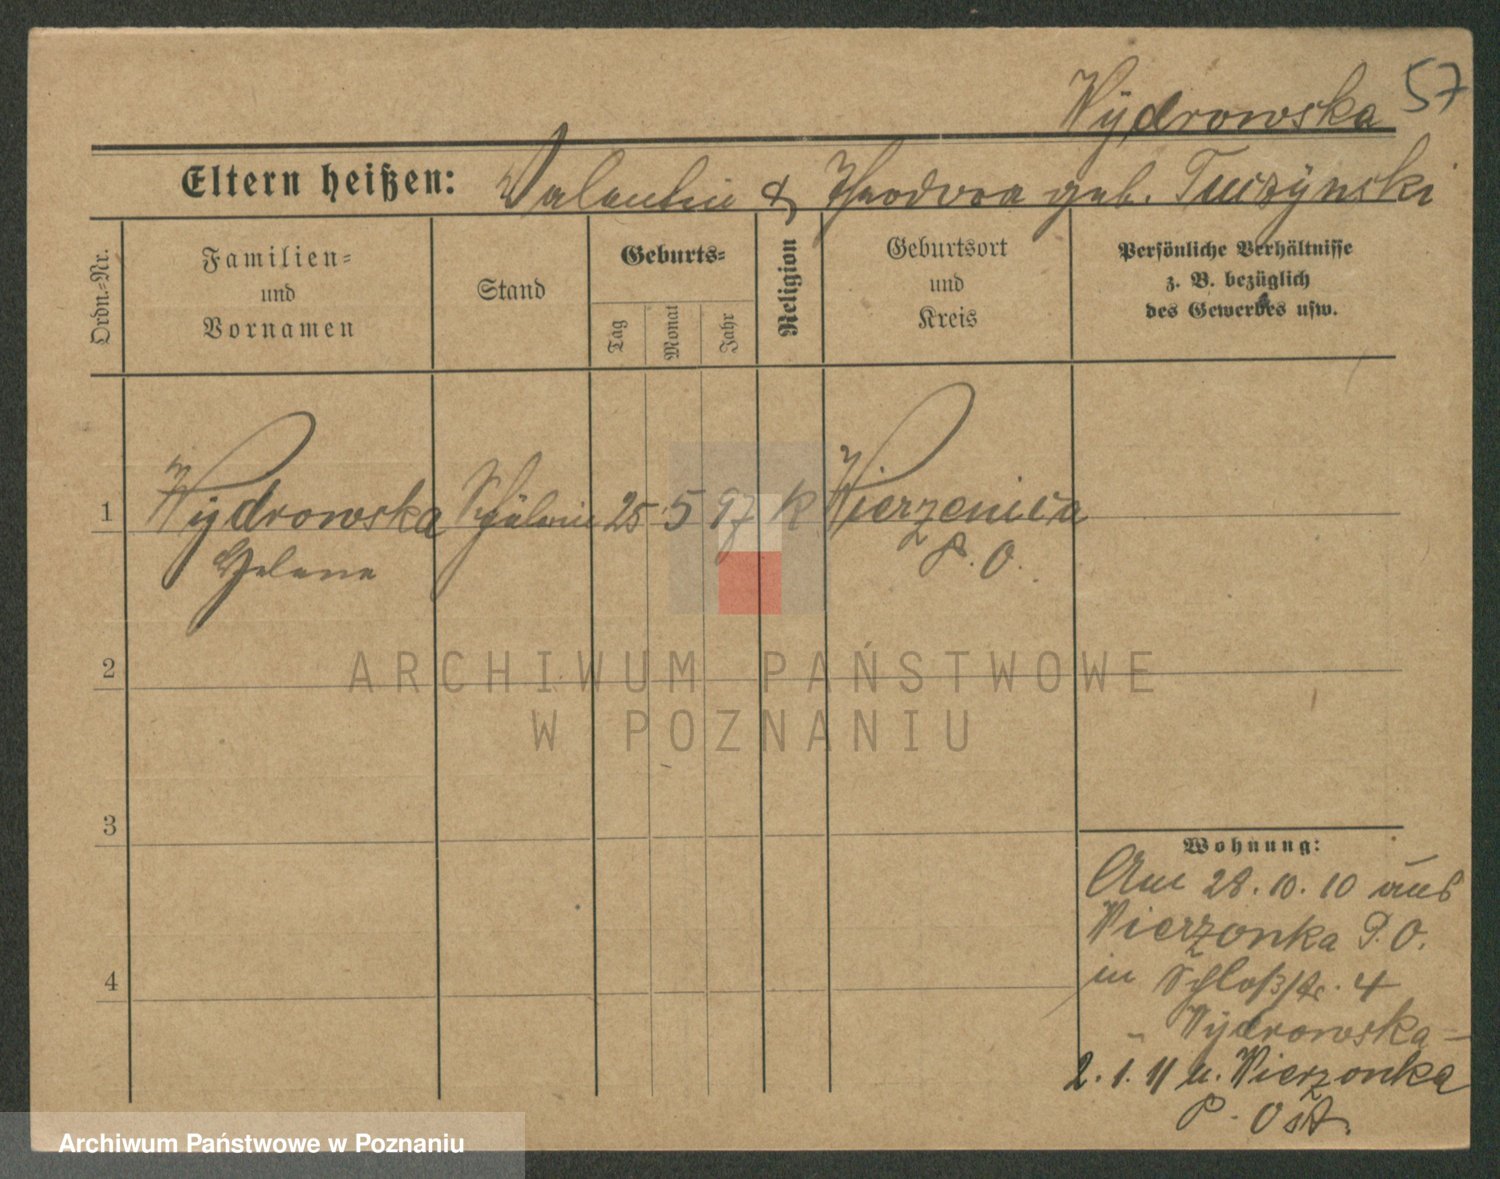 57
Wÿdrowska
Eltern heißen: Valentin & Theodora geb. Tuczÿnski
Ordn.-Nr.
Familien-
und
Vornamen
Stand
Geburts-
Tag
Monat
Jahr
Religion
Geburtsort
und
Kreis
Persönliche Verhältnisse
z. B. bezüglich
des Gewerbes usw.
1 Wÿdrowska Schülerin 25 5 97 K Wierzenica
Helene P. O.
2
3
4
Wohnung:
Am 28.10.10 aus
Wierzonka P.O.
in Schloßstr. 4
" Wÿdrowska -
2.1.11 n. Wierzonka
P. Ost.
ARCHIWUM PAŃSTWOWE
W POZNANIU
Archiwum Państwowe w Poznaniu